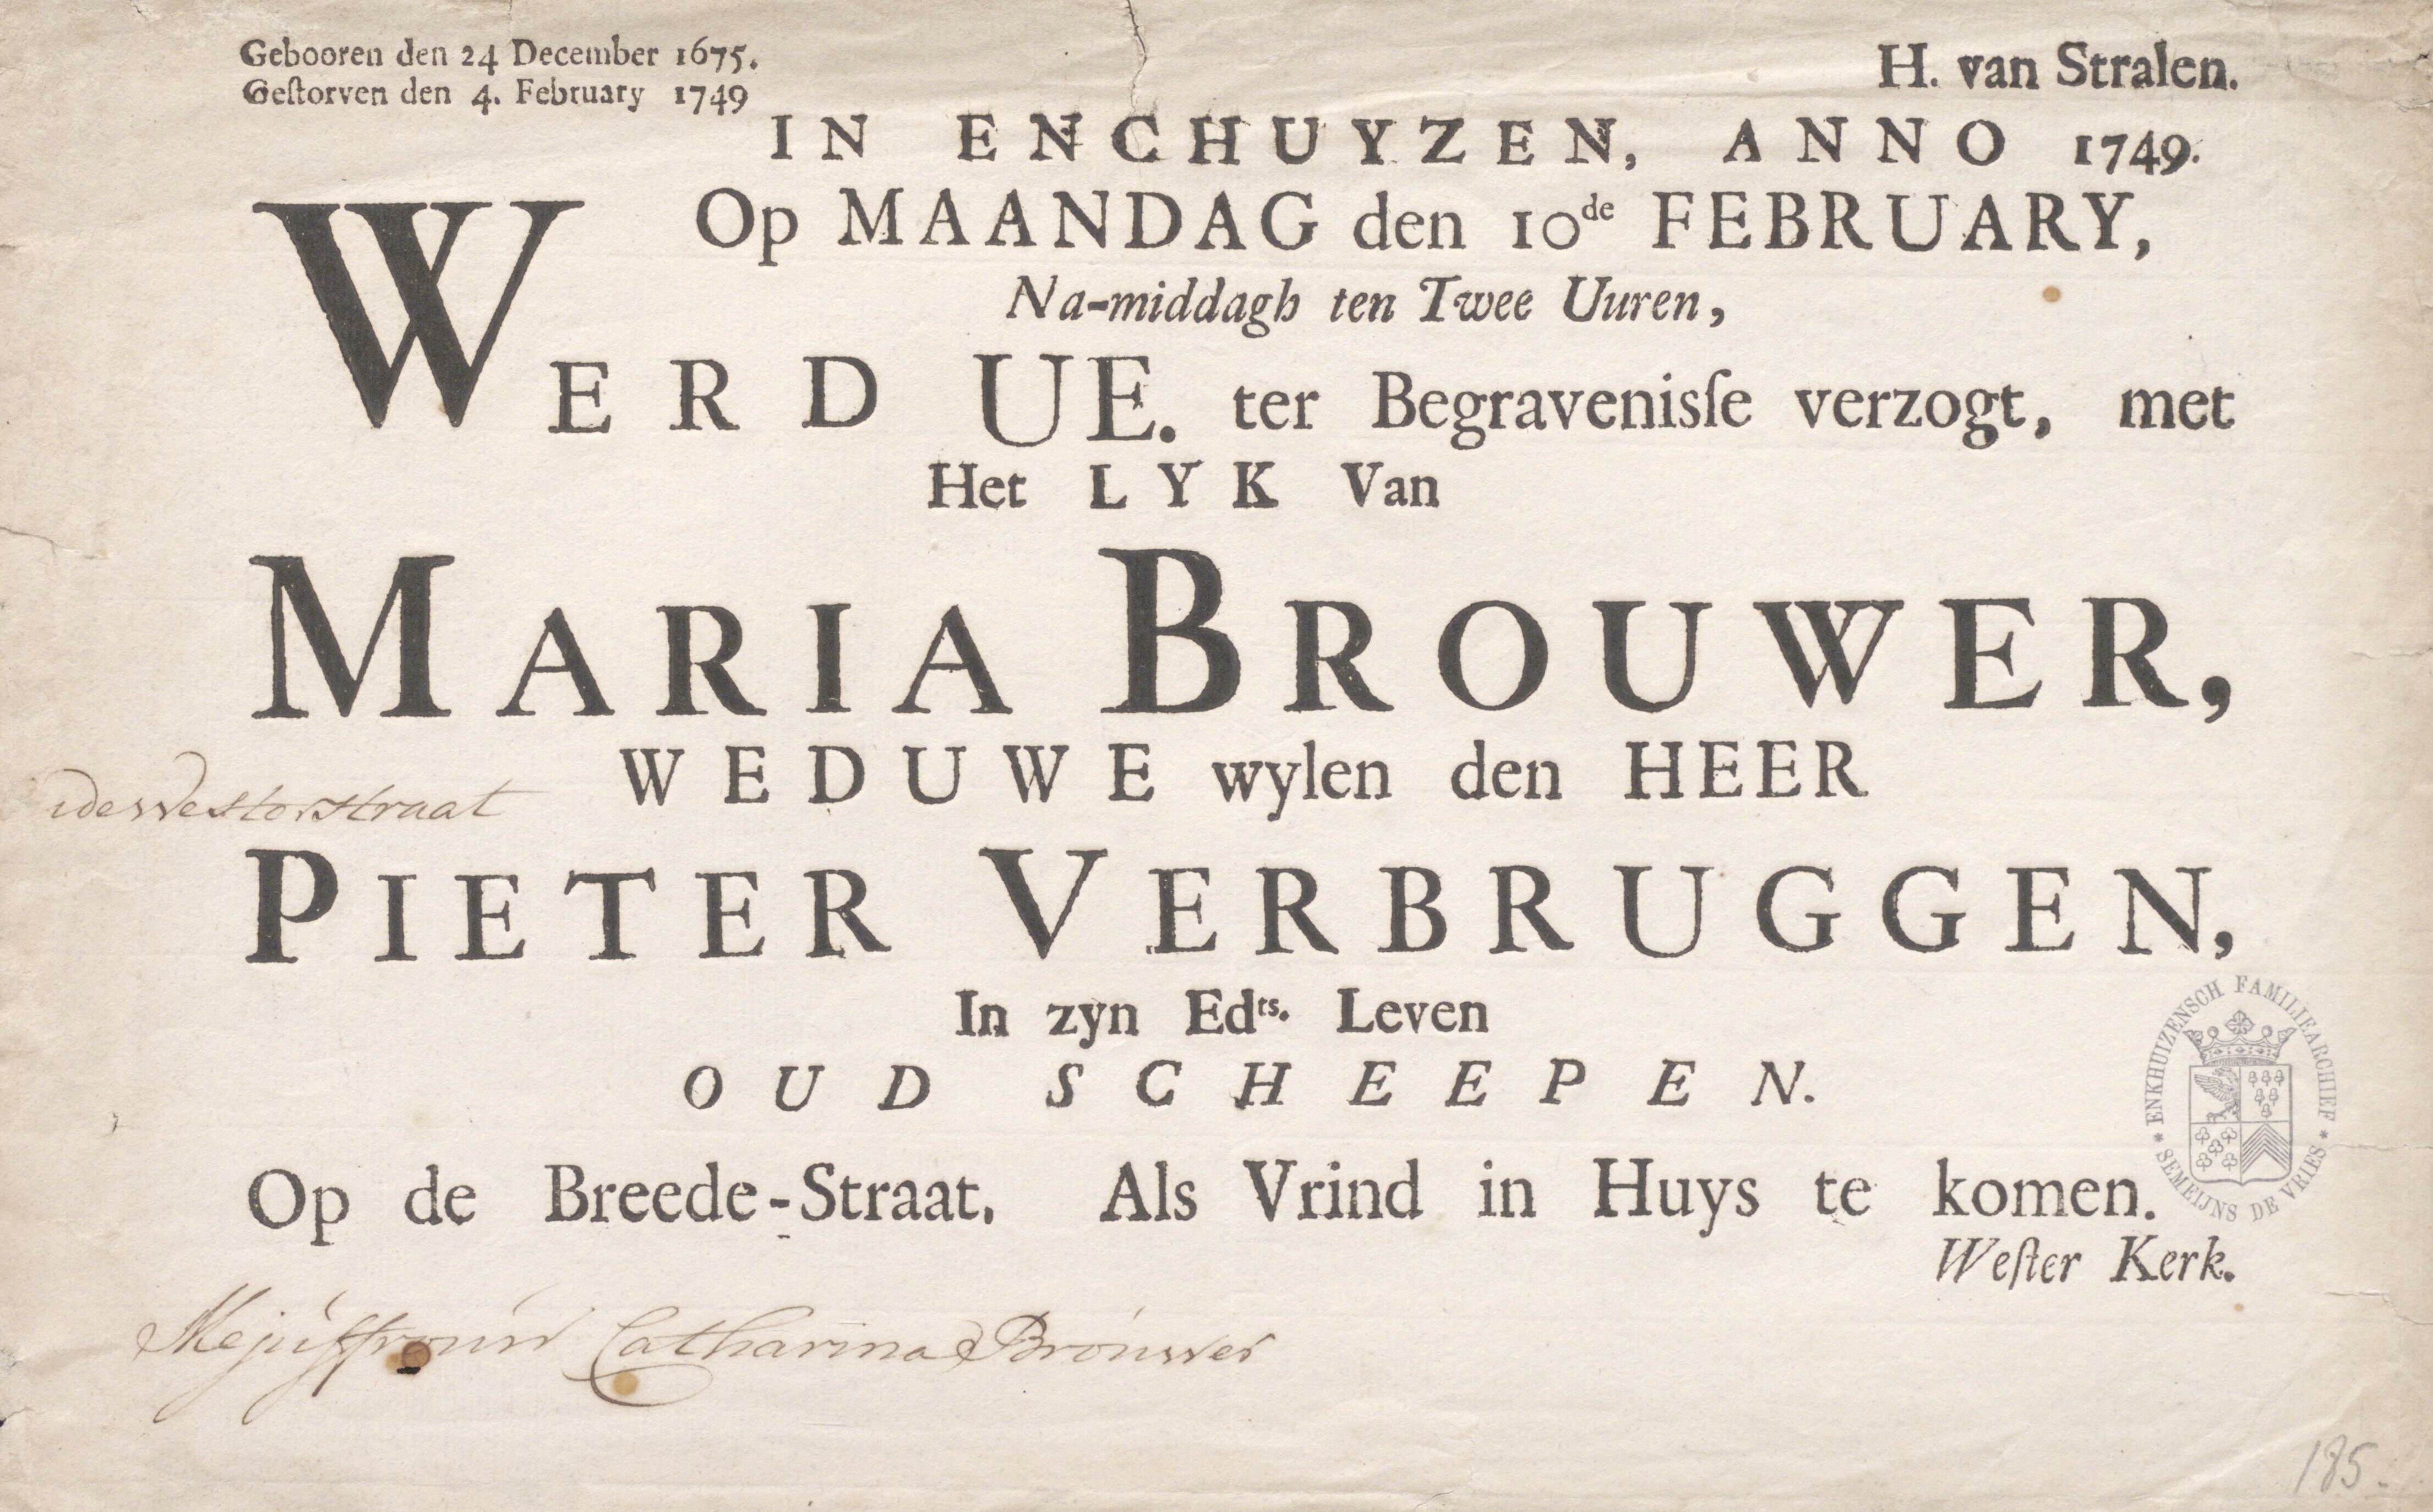 Gebooren den 24 December 1675.
Geſtorven den 4. February 1749
H. van Stralen.
IN ENCHUYZEN, ANNO 1749.
Op MAANDAG den 10de FEBRUARY,
Na-middagh ten Twee Uuren,
WERD UE. ter Begravenisſe verzogt, met
Het LYK Van
MARIA BROUWER,
WEDUWE wylen den HEER
westerstraat
PIETER VERBRUGGEN,
In zyn Edts. Leven
OUD SCHEEPEN.
Op de Breede-Straat. Als Vrind in Huys te komen.
Weſter Kerk.
ENKHUIZENSCH FAMILIEARCHIEF * SEMEIJNS DE VRIES *
Mejuffrouw Catharina Brouwer
185.